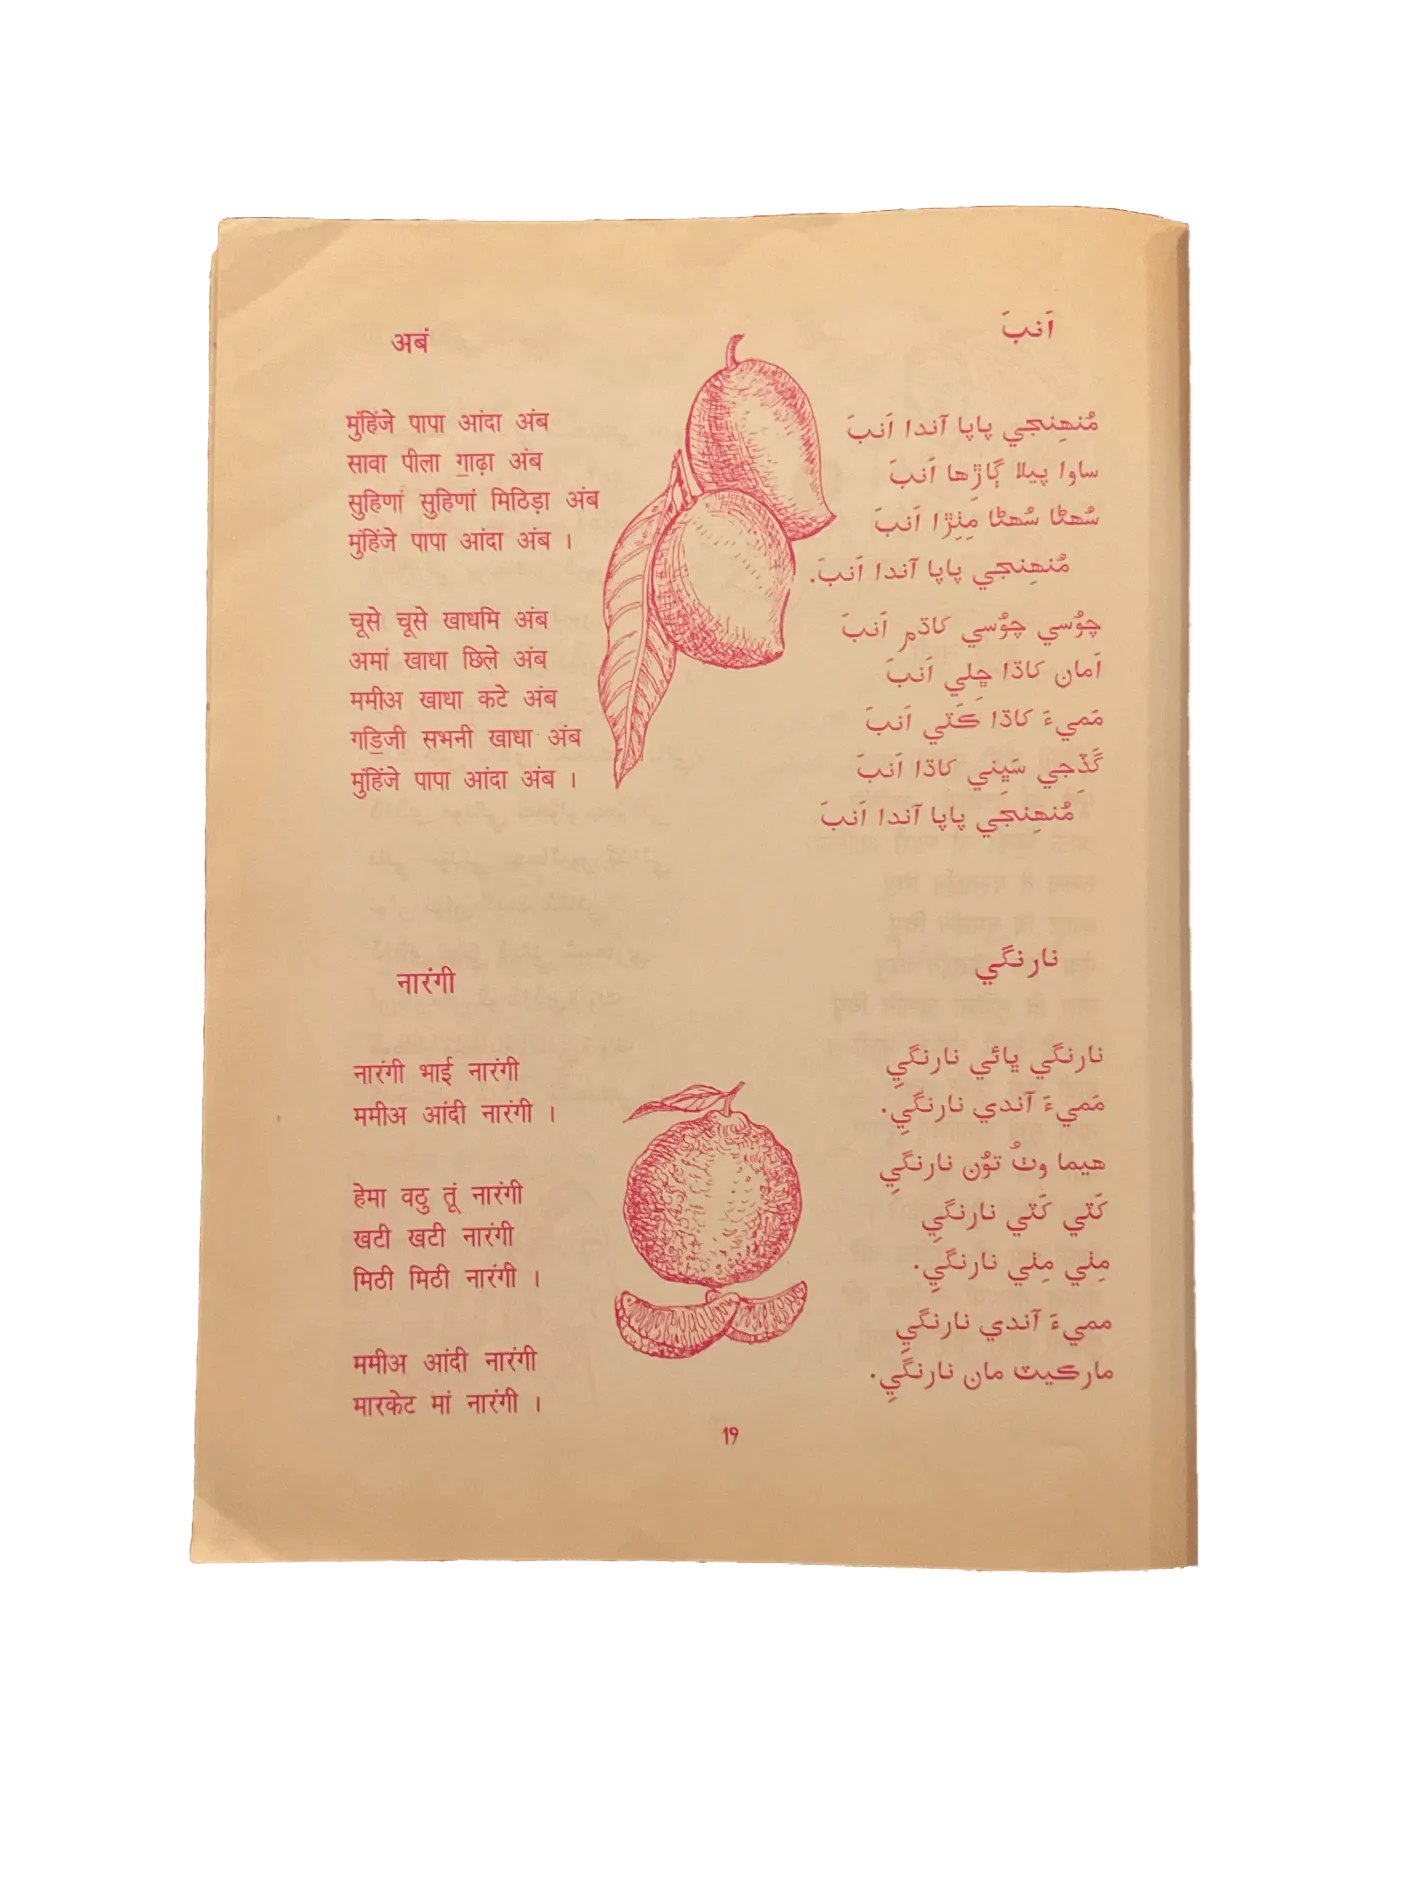 अबं
मुंहिंजे पापा आंदा अंब
सावा पीला ग॒ाढ़ा अंब
सुहिणां सुहिणां मिठिड़ा अंब
मुंहिंजे पापा आंदा अंब ।
चूसे चूसे खाधमि अंब
अमां खाधा छिले अंब
ममीअ खाधा कटे अंब
गडि॒जी सभनी खाधा अंब
मुंहिंजे पापा आंदा अंब ।
اَنبَ
مُنھِنجي پاپا آندا اَنبَ
ساوا پيلا ڳاڙِها اَنبَ
سُھڻا سُھڻا مِٺِڙا اَنبَ
مُنھِنجي پاپا آندا اَنبَ.
چوُسي چوُسي کاڌم اَنبَ
اَمان کاڌا ڇِلي اَنبَ
مَميءَ کاڌا ڪَٽي اَنبَ
گَڏجي سَڀني کاڌا اَنبَ
مُنھِنجَي پاپا آندا اَنبَ
नारंगी
नारंगी भाई नारंगी
ममीअ आंदी नारंगी ।
हेमा वठु तूं नारंगी
खटी खटी नारंगी
मिठी मिठी नारंगी ।
ममीअ आंदी नारंगी
मारकेट मां नारंगी ।
نارنگي
نارنگي ڀائي نارنگيِ
مَميءَ آندي نارنگيِ.
هيما وٺُ توُن نارنگيِ
کَٽي کَٽي نارنگيِ
مِٺي مِٺي نارنگيِ.
مميءَ آندي نارنگيِ
مارڪيٽ مان نارنگيِ.
19